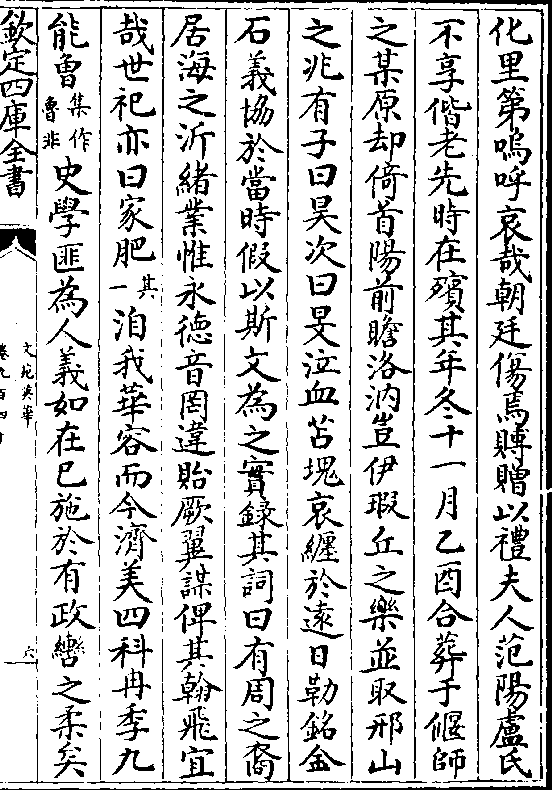 化里第嗚呼哀哉朝廷傷焉賻贈以禮夫人范陽盧氏
不享偕老先時在殯其年冬十一月乙酉合葬于偃師
之某原却倚首陽前瞻洛汭豈伊瑕丘之樂並取邢山
之兆有子曰昊次曰旻泣血苫塊哀纏於遠日勒銘金
石義協於當時假以斯文為之實錄其詞曰有周之裔
居海之沂緒業惟永德音罔違貽厥翼謀俾其翰飛宜
哉世祀亦曰家肥其一洎我華容而今濟美四科冉季九
能魯集作魯非史學匪為人義如在已施於有政轡之柔矣
欽定四庫全書
文苑英華
六